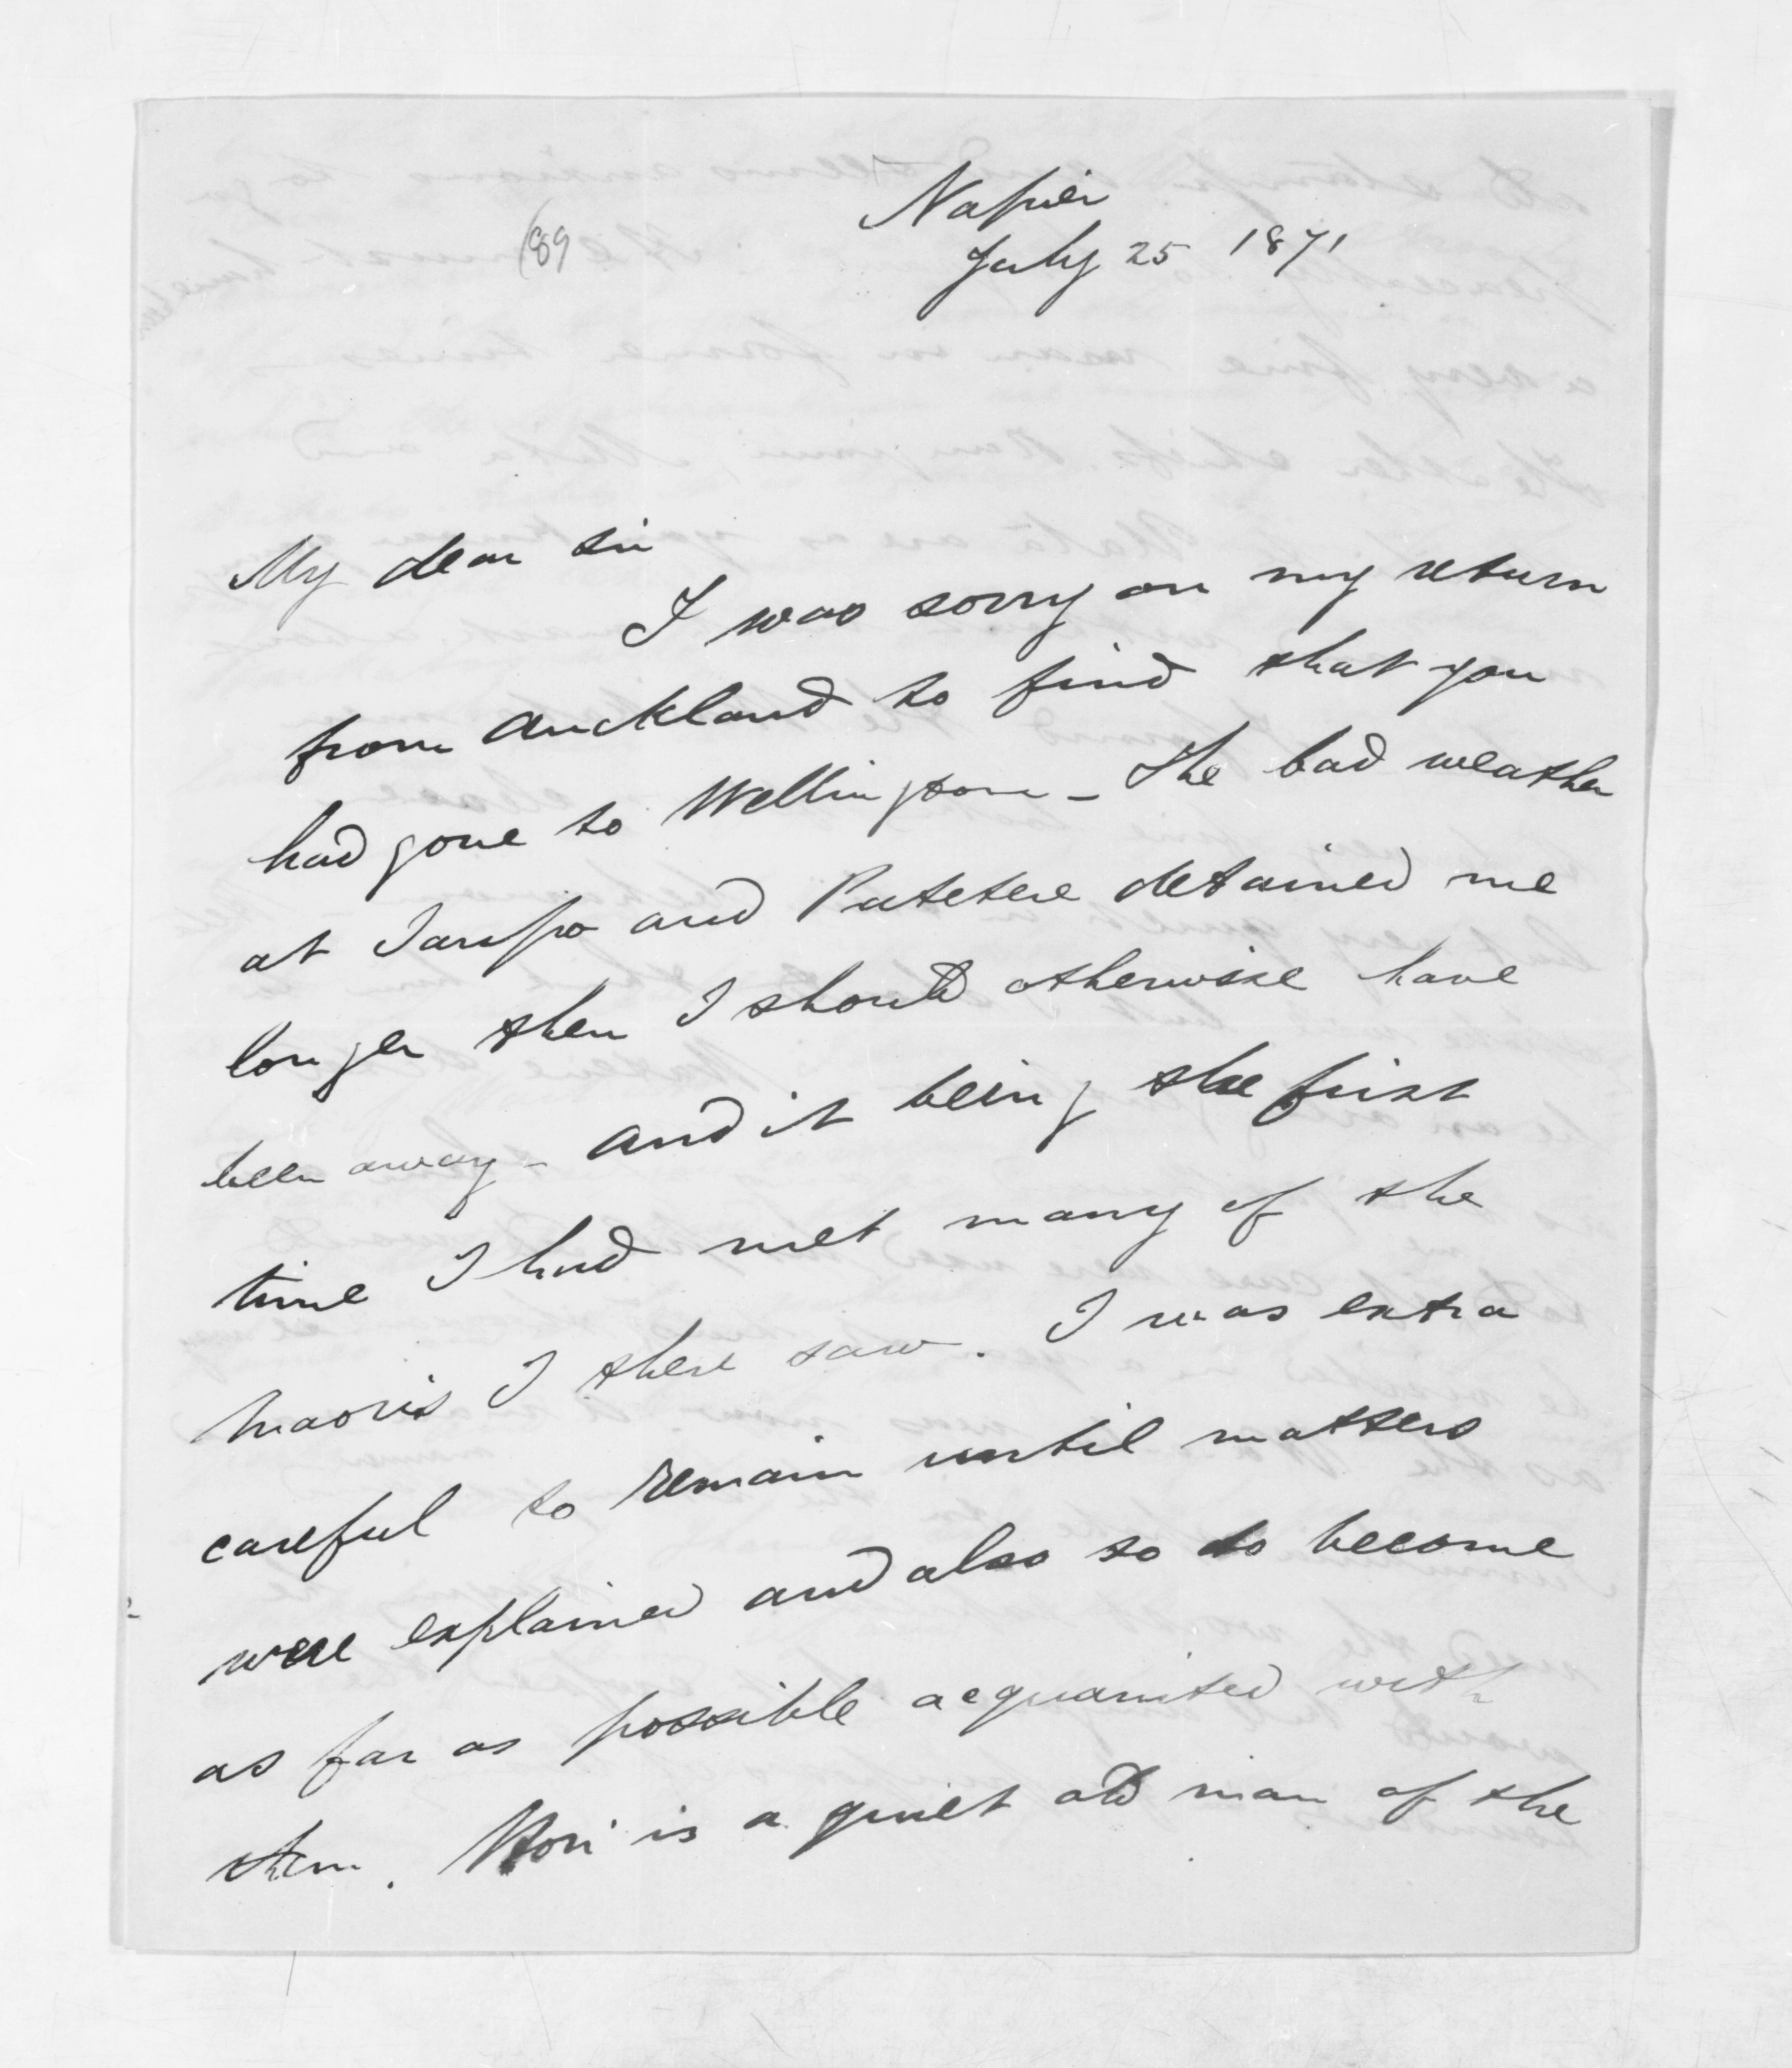 Napier
July 25 1871
(89
My dear Sir
I was sorry on my return
from Auckland to find that you
had gone to Wellington - The bad weather
at Taupo and Patetere detained me
longer then I should otherwise have
been away - and it being the first
time I had met many of the
Maoris I there saw. I was extra
careful to remain until matters
were explained and also so to become
as far as possible acquainted with
them. Hori is a quiet old man of the